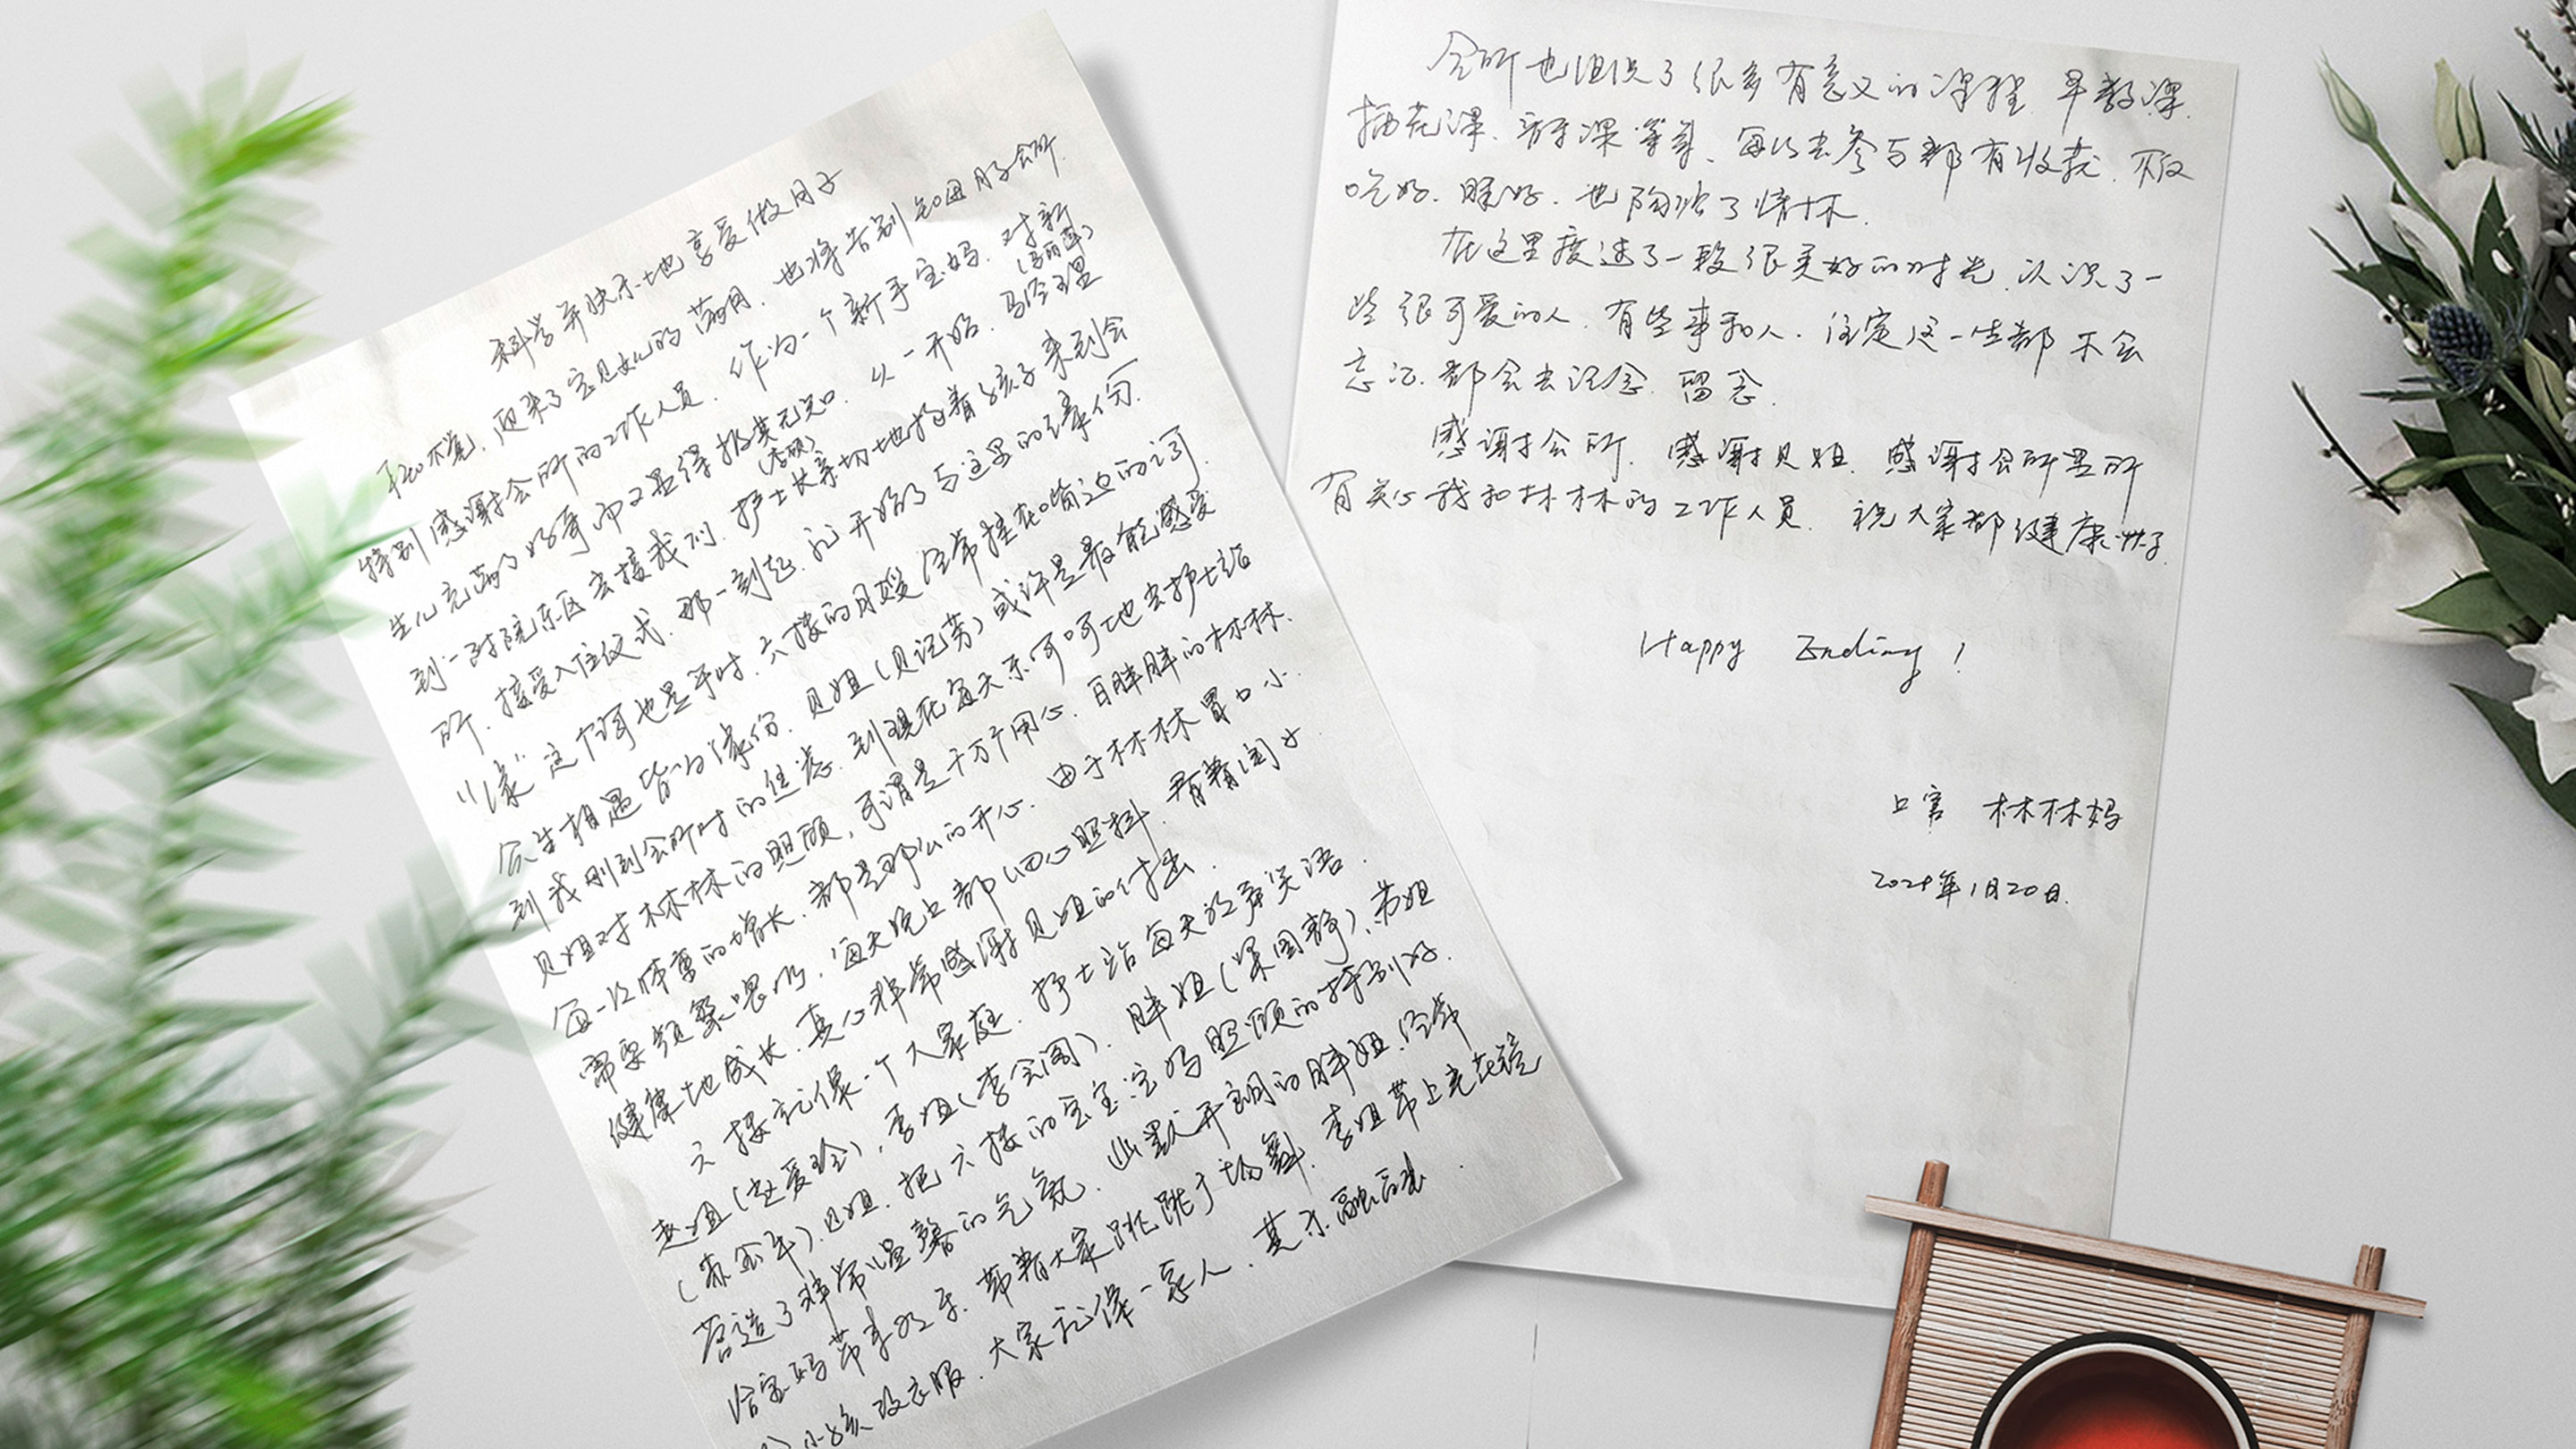 科学并快乐地享受做月子
不知不觉，迎来了宝贝女儿的满月，也将告别知母月子会所.
特别感谢会所的工作人员. 作为一个新手宝妈. 对新
生儿充满了好奇而又显得极其无知. 从一开始. 马经理(马丽萍)
到一附院东区去接我们. 护士长(李硕)亲切地抱着女孩子来到会
所. 接受入住仪式. 那一刻起. 就开始了与这里的缘份.
“缘”这个词也是平时. 六楼的月嫂经常挂在嘴边的词.
众生相遇皆为缘份. 贝姐(贝记芳)或许是最能感受
到我刚到会所时的焦虑. 到现在每天乐呵呵地去护士站
贝姐对林林的照顾, 可谓是千万个用心. 白胖胖的林林.
每一次体重的增长. 都是那么的开心. 由于林林胃口小.
需要频繁喂奶. 每天晚上都细心照料. 看着闺女
健康地成长. 真心非常感谢贝姐的付出.
六楼就像一个大家庭. 护士站每天欢声笑语.
赵姐(赵爱玲), 李姐(李会阁). 胖姐(梁国静), 苏姐
(苏金平). 贝姐. 把六楼的宝宝宝妈照顾的特别好.
营造了非常温馨的气氛. 幽默开朗的胖姐. 经常
给宝妈带来欢乐. 带着大家跳跳广场舞. 李姐带上老花镜
小女孩改衣服. 大家就像一家人. 其乐融融.
会所也组织了很多有意义的课程. 早教课.
插花课. 亲子课等等. 每次去参与都有收获. 不仅
吃好. 睡好. 也陶冶了情怀.
在这里度过了一段很美好的时光. 认识了一
些很可爱的人. 有些事和人. 注定这一生都不会
忘记. 都会去记念. 留念.
感谢会所. 感谢贝姐. 感谢会所里所
有关心我和林林的工作人员. 祝大家都健康快乐.
Happy Ending!
上官 林林妈
2024年1月20日.